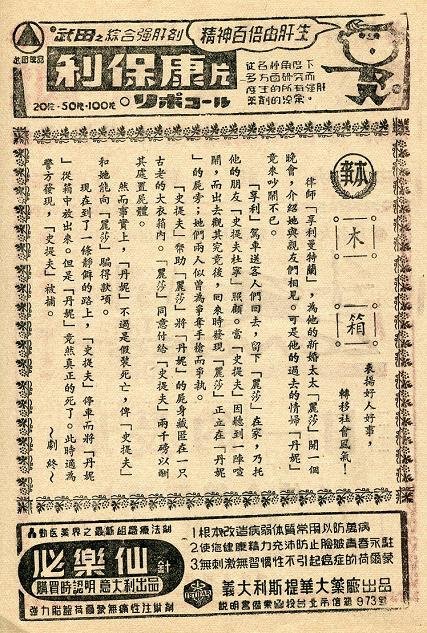 武田之綜合强肝剤
精神百倍由肝生
利保康片
20片・50片・100片
リポコール
從各種角度下
多方面研究而
產生的所有强肝
藥劑的
本事
木箱
表揚好人好事,
轉移社會風氣!
律師「亨利曼特蘭」,為他的新婚太太「麗莎」開一個
晚會,介紹她與親友們相見。可是他的過去的情婦「丹妮」
竟來吵鬧不已。
「亨利」駕車送客人們回去,留下「麗莎」在家,乃托
他的朋友「史提夫杜寧」照顧。當「史提夫」因聽到一陣喧
鬧,而出去觀其究竟後,回來時發現「麗莎」正立在「丹妮
」的屍旁;她們兩人似曾為爭奪手槍而爭執。
「史提夫」幫助「麗莎」將「丹妮」的屍身藏匿在一只
古老的大衣箱內。「麗莎」同意付給「史提夫」兩千磅以酬
其處置屍體。
然而事實上,「丹妮」不過是假裝死亡,俾「史提夫」
和她能向「麗莎」騙得款項。
現在到了一條靜僻的路上,「史提夫」停車而將「丹妮
」從箱中放出來。但是「丹妮」竟然真正的死了。此時適為
警方發現,「史提夫」被捕。
~劇終~
轟動医美界之最新組織療法劑
必樂仙針
購買時認明意大利出品
强力胎盤荷爾蒙無痛性注射劑
1根本改造病弱体質常用以防萬病
2使您健康精力充沛防止臉皺青春永駐
3無刺激無習慣性不引起癌症的荷爾蒙
義大利斯提華大藥廠出品
説明書備索函投台北市信箱973號